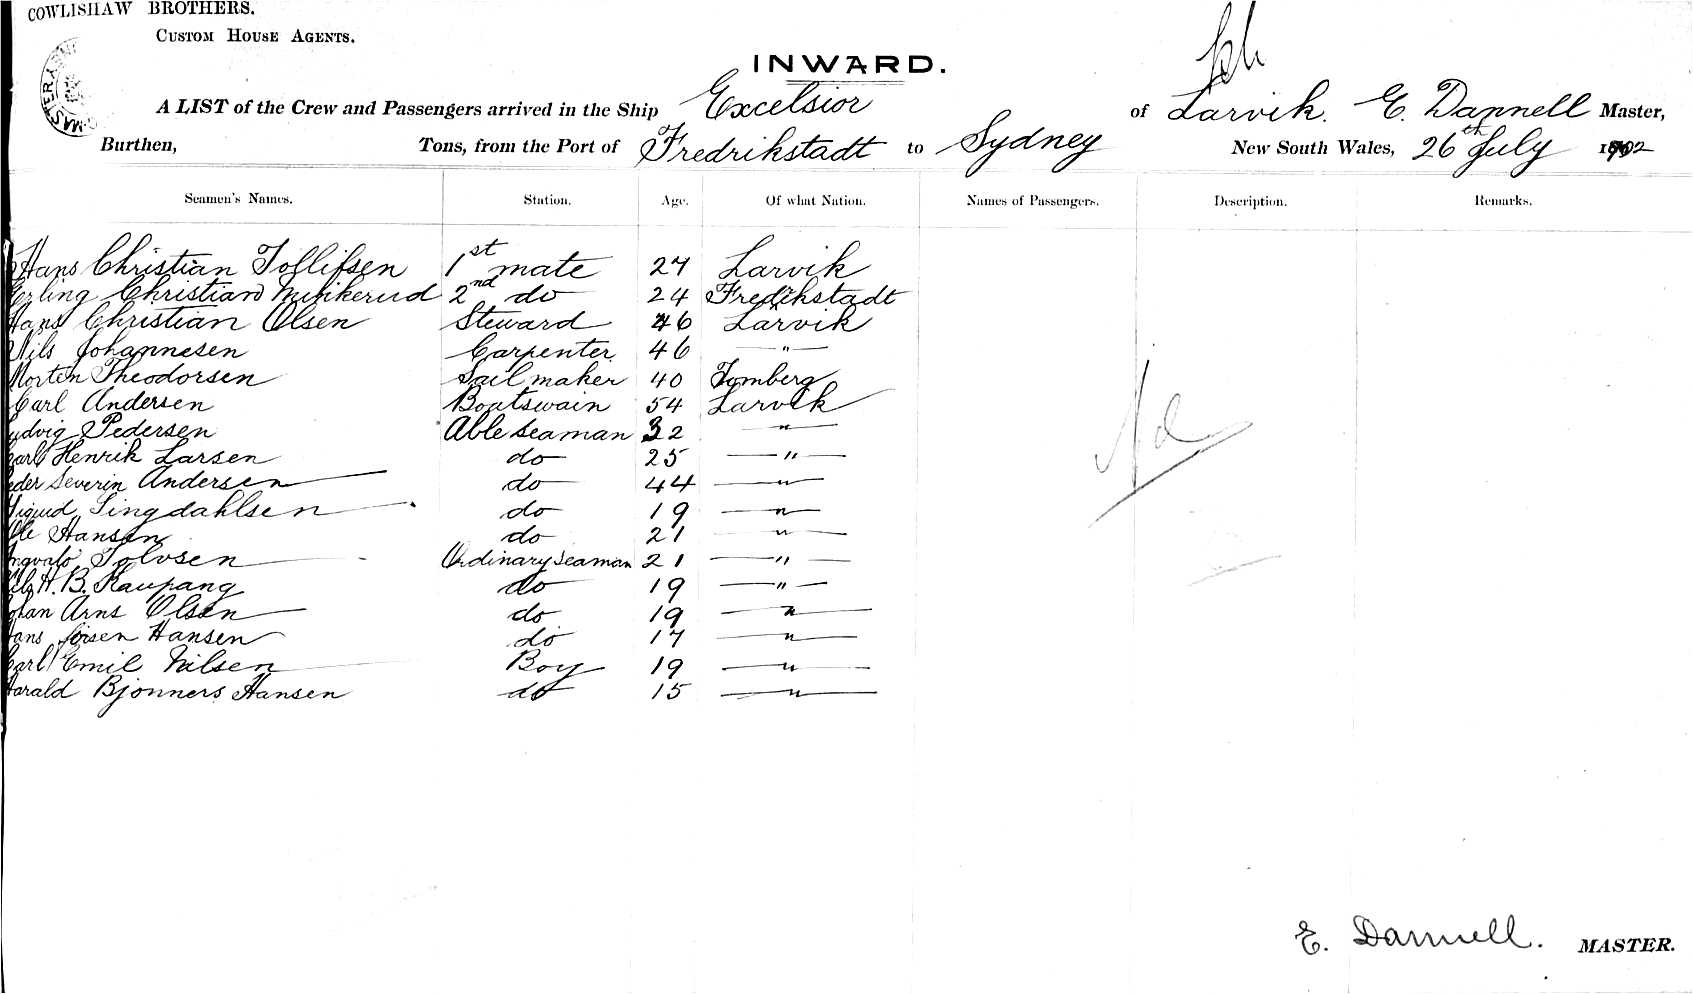 COWLISHAW BROTHERS.
CUSTOM HOUSE AGENTS.
INWARD.
A LIST of the Crew and Passengers arrived in the Ship Excelsior of Larvik. E. Dannell Master,
Burthen, Tons, from the Port of Fredrikstadt to Sydney New South Wales, 26th July 1902
Seamen's Names. Station. Age. Of what Nation. Names of Passengers. Description. Remarks.
Hans Christian Tollifsen 1st mate 27 Larvik
Erling Christian 2nd do 24 Fredrikstadt
Hans Christian Olsen Steward 46 Larvik
Nils Johannesen Carpenter 46 "
Morten Theodorsen Sail maker 40
Carl Andersen Boatswain 54 Larvik
Ludvig Pedersen Able seaman 32 "
Carl Henrik Larsen do 25 "
Peder Severin Andersen do 44 "
Sigurd Lingdahlsen do 19 "
Ole Hansen do 21 "
Ingvald Tolvsen Ordinary seaman 21 "
Nils H. B. Kaupang do 19 "
Johan Arns Olsen do 19 "
Hans Hansen do 17 "
Carl Emil Nilsen Boy 19 "
Harald Bjonners Hansen do 15 "
E. Dannell. MASTER.